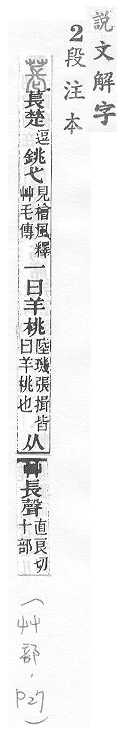 說文解字
2段注本
萇楚逗銚弋見檜風釋艸毛傳一曰羊桃陸璣張揖皆曰羊桃也从艸長聲直良切十部
(艸部,P27)